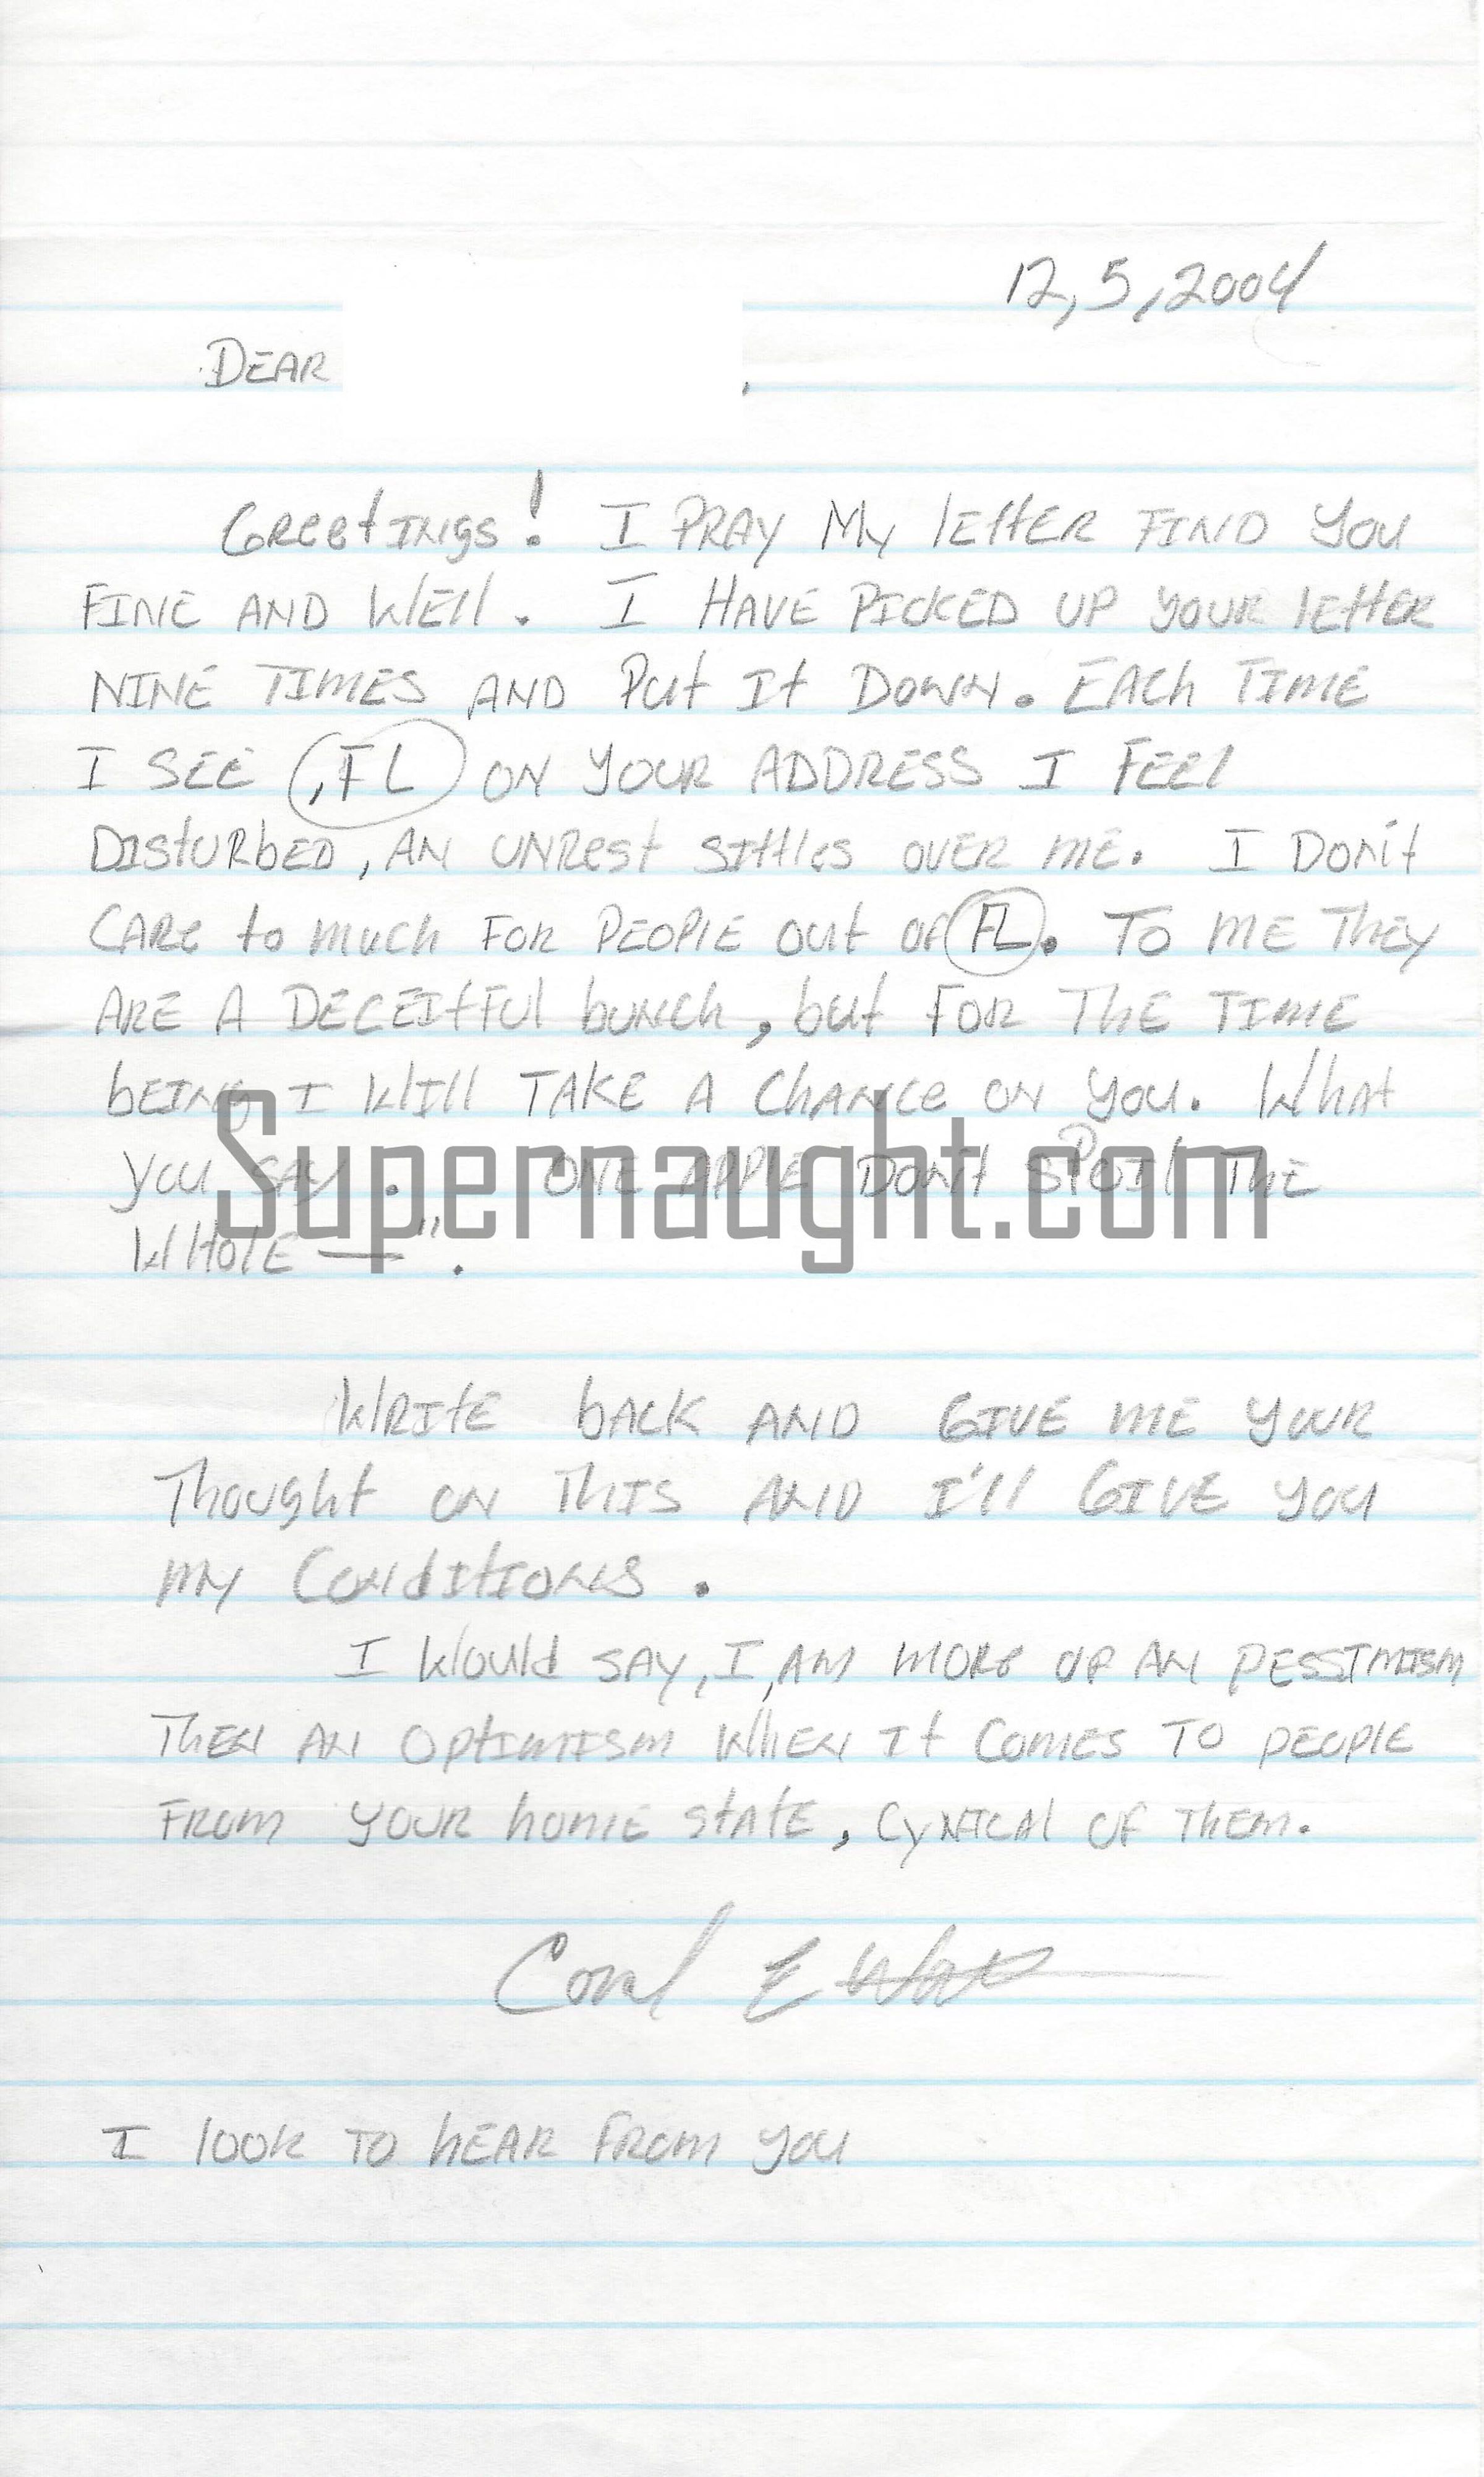 12,5,2004
DEAR ,
Greetings! I PRAY My letter FIND you
FINE AND Well. I HAVE PICKED UP your letter
NINE TIMES AND Put It DOWN. EACh TIME
I SEE (,FL) ON YOUR ADDRESS I FEEl
DISturbED, AN UNRest sittles OVER ME. I Don't
CARE to much FOR PEOPlE out OF (FL). TO ME ThEY
ARE A DECEItFUl bunch, but FOR ThE TIME
bEING I WIll TAKE A ChANce ON you. What
you SAY. ONE APPlE Don't SPOIl ThE
WHolE —".
Supernaught.com
WRItE bACK AND GIVE ME YOUR
Thought ON ThIS AND I'll GIVE YOU
MY CONdItIONS.
I Would SAY, I, AM MORE OF AN PESSIMISM
ThEN AN OptIMISM WhEN It COMES TO PEOPlE
FROM YOUR hOME StAtE, CYNICAl OF ThEM.
I look TO hEAR FROM you